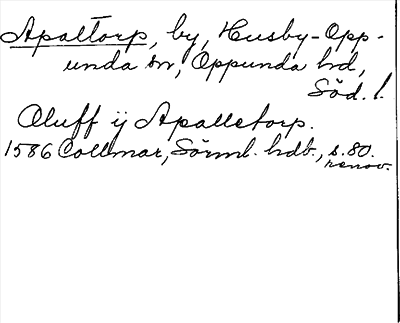 Apaltorp, by, Husby-Opp-
unda sn, Oppunda hd,
Söd. l.
Oluff ij Apalletorp.
1586 Collmar, Sörml. hdb., s. 80.
renov.